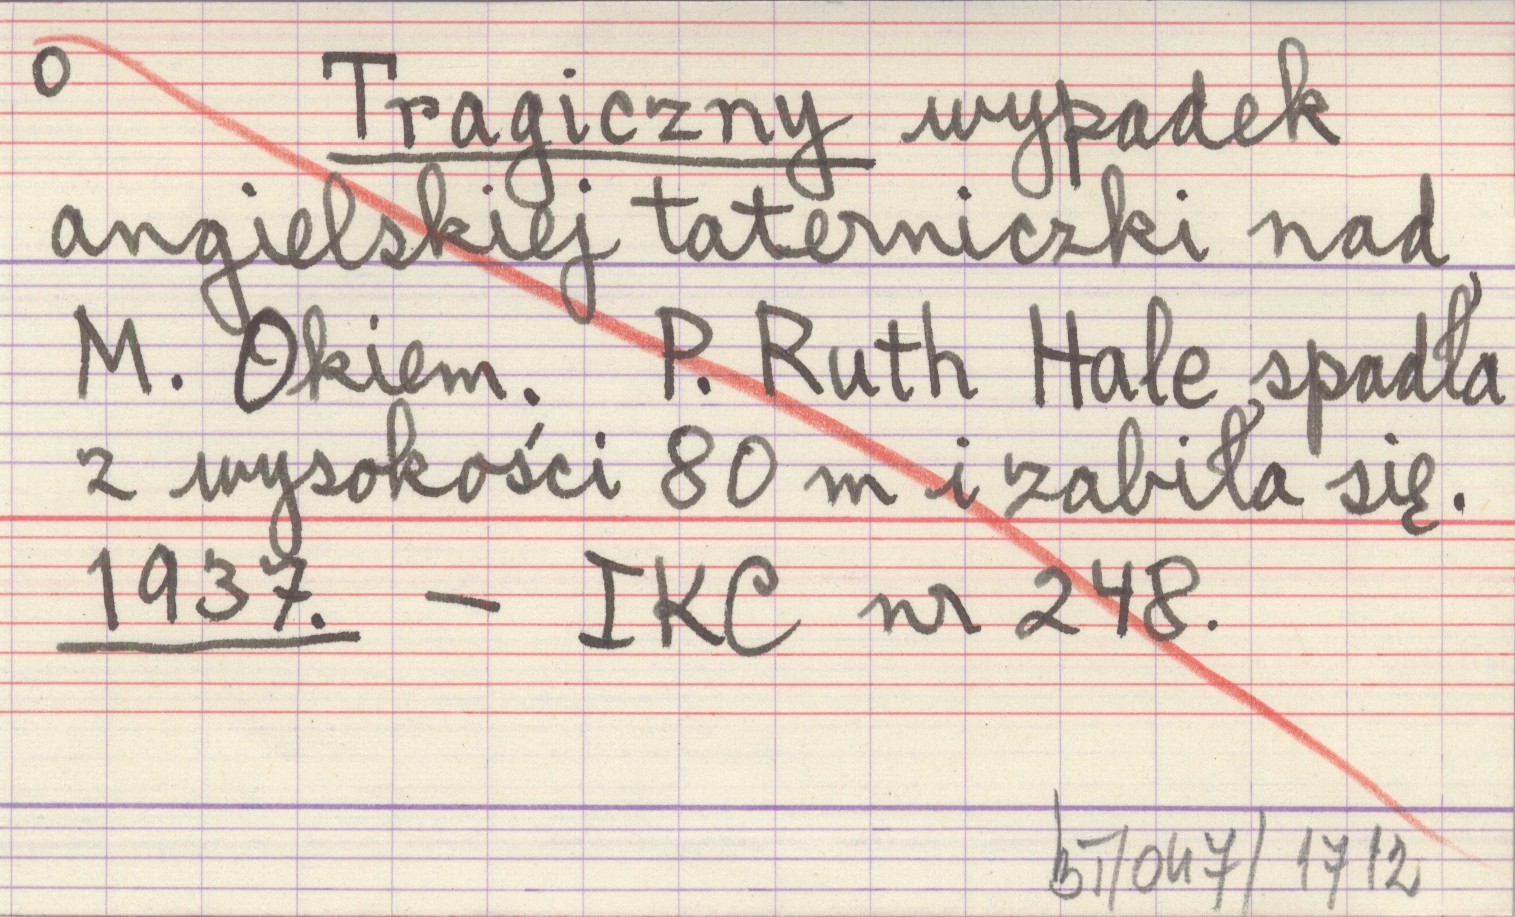 O Tragiczny wypadek
angielskiej taterniczki nad
M. Okiem. P. Ruth Hale spadła
z wysokości 80 m i zabiła się.
1937. – IKC nr 248.
BT/047/1712